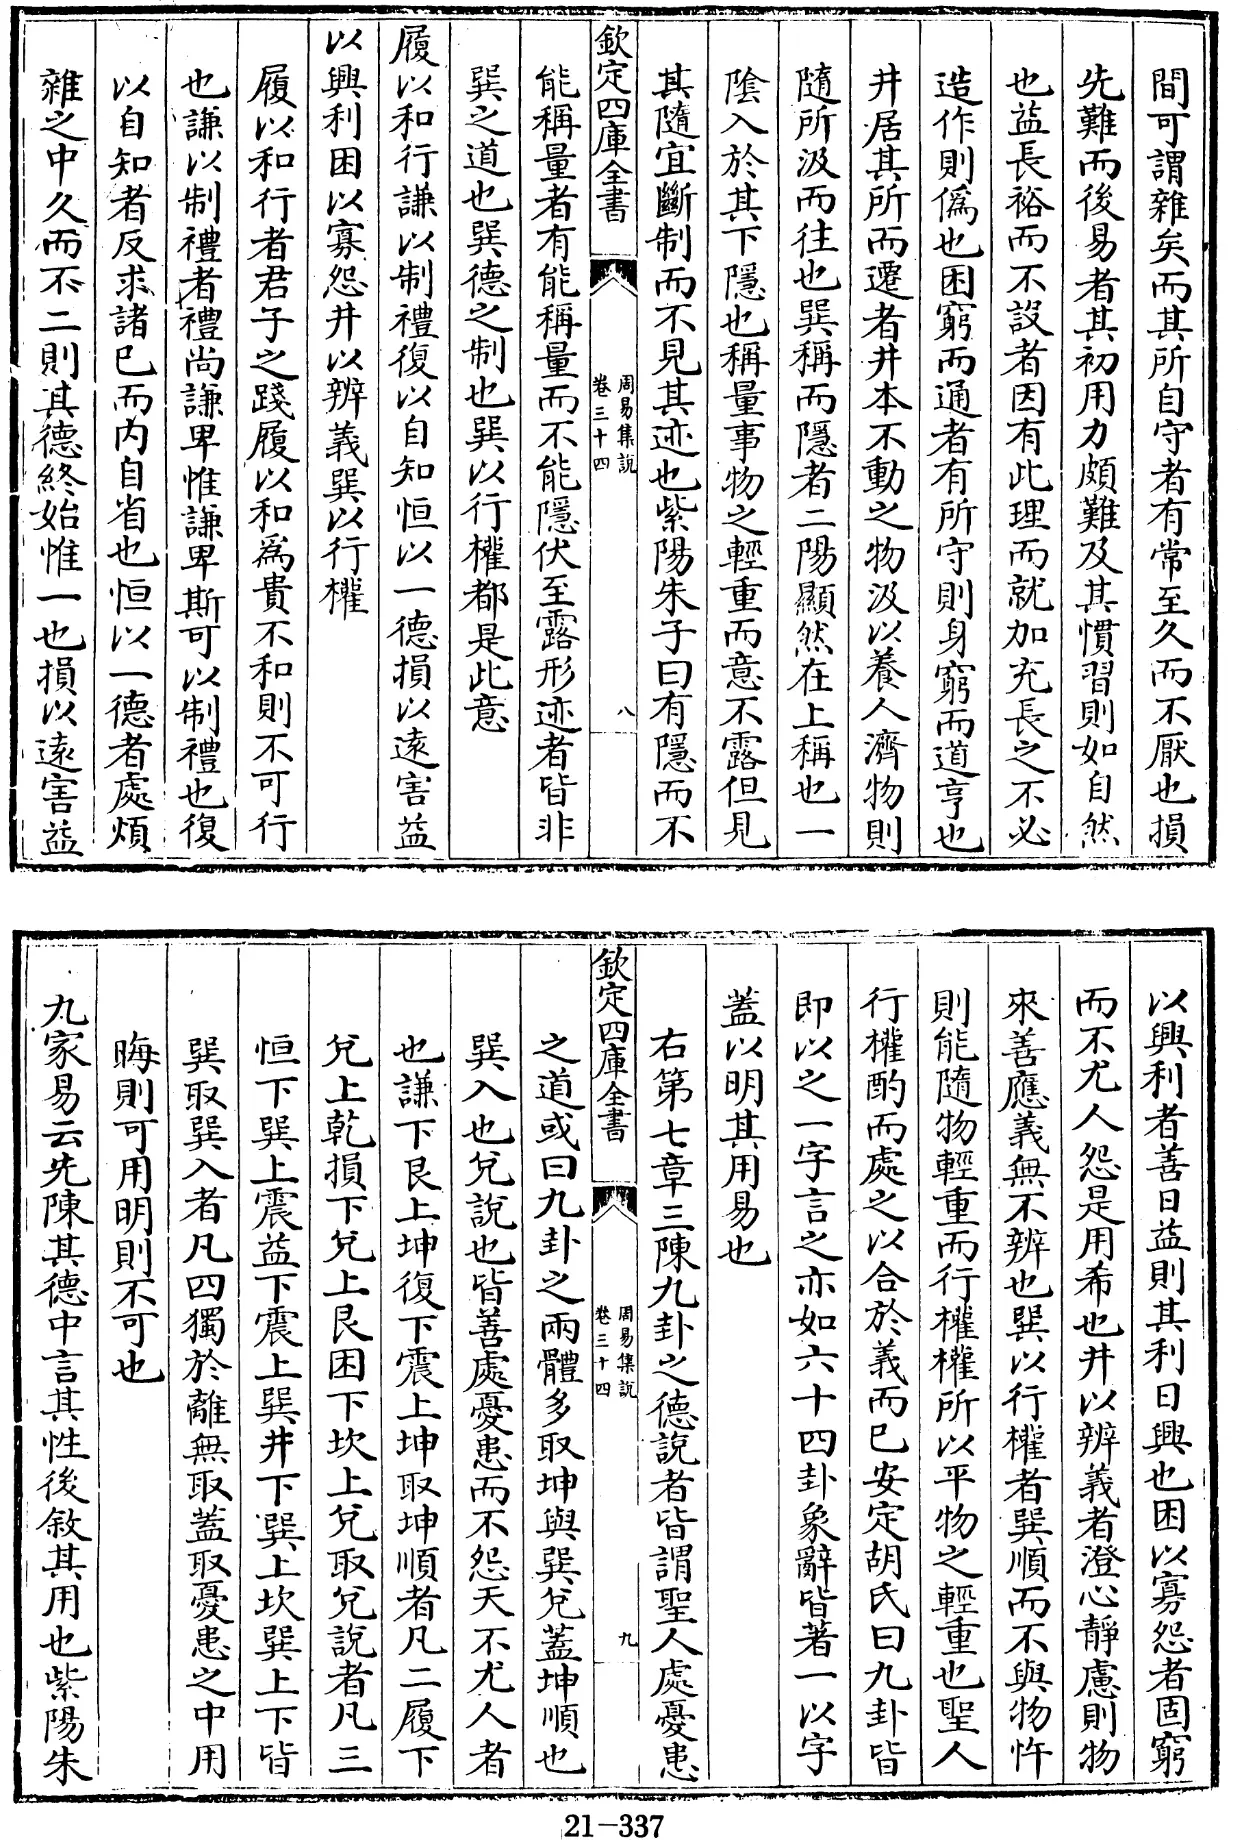 間可謂雜矣而其所自守者有常至久而不厭也損
先難而後易者其初用力頗難及其慣習則如自然
也益長裕而不設者因有此理而就加充長之不必
造作則僞也困窮而通者有所守則身窮而道亨也
井居其所而遷者井本不動之物汲以養人濟物則
隨所汲而往也巽稱而隱者二陽顯然在上稱也一
陰入於其下隱也稱量事物之輕重而意不露但見
其隨宜斷制而不見其迹也紫陽朱子曰有隱而不
欽定四庫全書
周易集說
卷三十四
八
能稱量者有能稱量而不能隱伏至露形迹者皆非
巽之道也巽德之制也巽以行權都是此意
履以和行謙以制禮復以自知恒以一德損以遠害益
以興利困以寡怨井以辨義巽以行權
履以和行者君子之踐履以和爲貴不和則不可行
也謙以制禮者禮尚謙卑惟謙卑斯可以制禮也復
以自知者反求諸已而内自省也恒以一德者處煩
雜之中久而不二則其德終始惟一也損以遠害益
以興利者善日益則其利日興也困以寡怨者固窮
而不尤人怨是用希也井以辨義者澄心靜慮則物
來善應義無不辨也巽以行權者巽順而不與物忤
則能隨物輕重而行權權所以平物之輕重也聖人
行權酌而處之以合於義而已安定胡氏曰九卦皆
即以之一字言之亦如六十四卦象辭皆著一以字
蓋以明其用易也
右第七章三陳九卦之德說者皆謂聖人處憂患
欽定四庫全書
周易集說
卷三十四
九
之道或曰九卦之兩體多取坤與巽兌蓋坤順也
巽入也兌說也皆善處憂患而不怨天不尤人者
也謙下艮上坤復下震上坤取坤順者凡二履下
兌上乾損下兌上艮困下坎上兌取兌說者凡三
恒下巽上震益下震上巽井下巽上坎巽上下皆
巽取巽入者凡四獨於離無取蓋取憂患之中用
晦則可用明則不可也
九家易云先陳其德中言其性後敘其用也紫陽朱
21-337